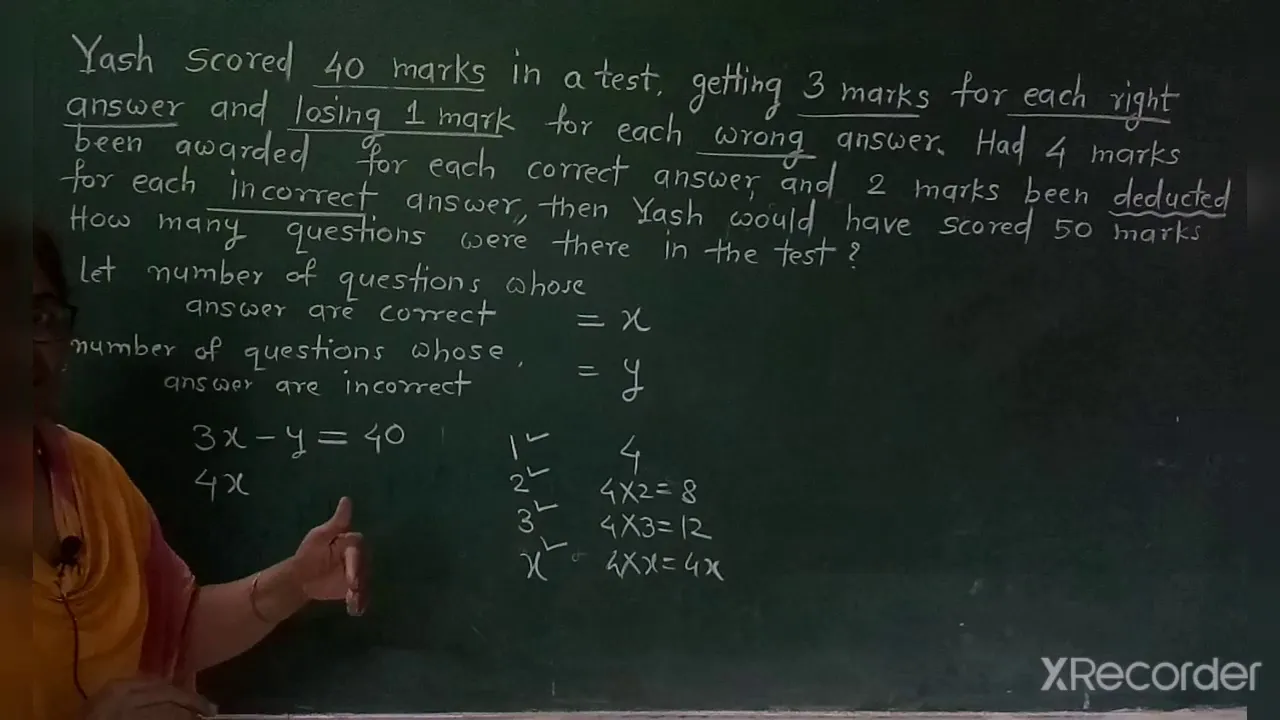 Yash scored 40 marks in a test, getting 3 marks for each right
answer and losing 1 mark for each wrong answer. Had 4 marks
been awarded for each correct answer, and 2 marks been deducted
for each incorrect answer, then Yash would have scored 50 marks
How many questions were there in the test?
Let number of questions whose
answer are correct = x
number of questions whose
answer are incorrect = y
3x - y = 40
4x
1✓ 4
2✓ 4×2=8
3✓ 4×3=12
x✓ 4×x=4x
XRecorder